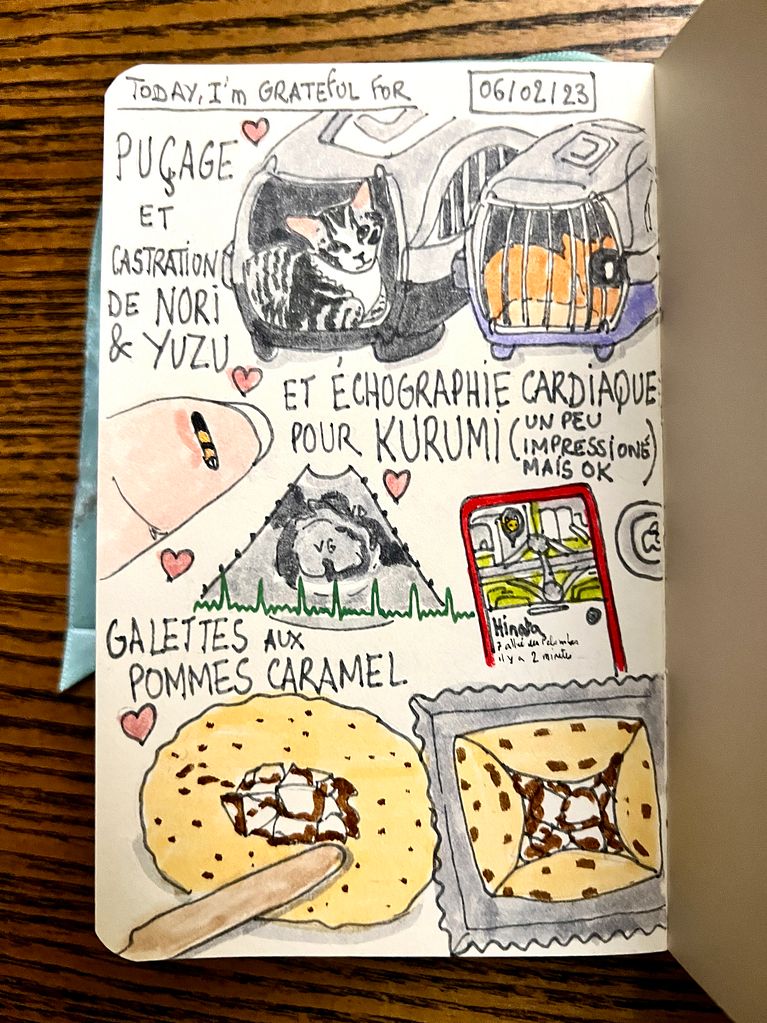 TODAY, I'm GRATEFUL FOR
06/02/23
PUÇAGE
ET
CASTRATION
DE NORI
& YUZU
ET ÉCHOGRAPHIE CARDIAQUE
POUR KURUMI (UN PEU
IMPRESSIONÉ
MAIS OK)
VG
Hinata
7 allée des Palombes
il y a 2 minutes
GALETTES AUX
POMMES CARAMEL